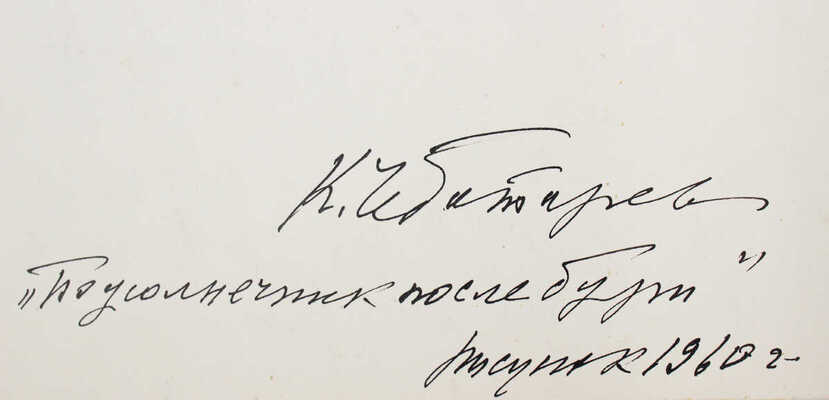 К. Чеботарев
„Подсолнечник после бури"
рисунок 1960 г.